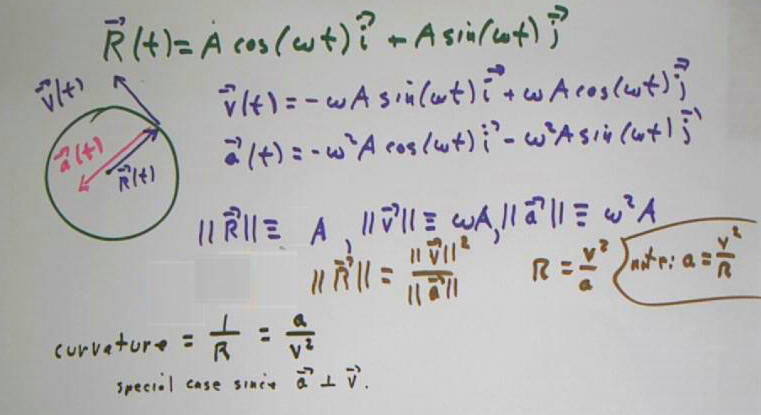 R⃗(t) = A cos(ωt) i⃗ + A sin(ωt) j⃗
v⃗(t)
v⃗(t) = -ωA sin(ωt) i⃗ + ωA cos(ωt) j⃗
a⃗(t)
R⃗(t)
a⃗(t) = -ω²A cos(ωt) i⃗ - ω²A sin(ωt) j⃗
||R⃗|| ≡ A, ||v⃗|| ≡ ωA, ||a⃗|| ≡ ω²A
||R⃗|| = ||v⃗||² / ||a⃗||   R = v²/a   note: a = v²/R
curvature = 1/R = a/v²
special case since a⃗ ⊥ v⃗.